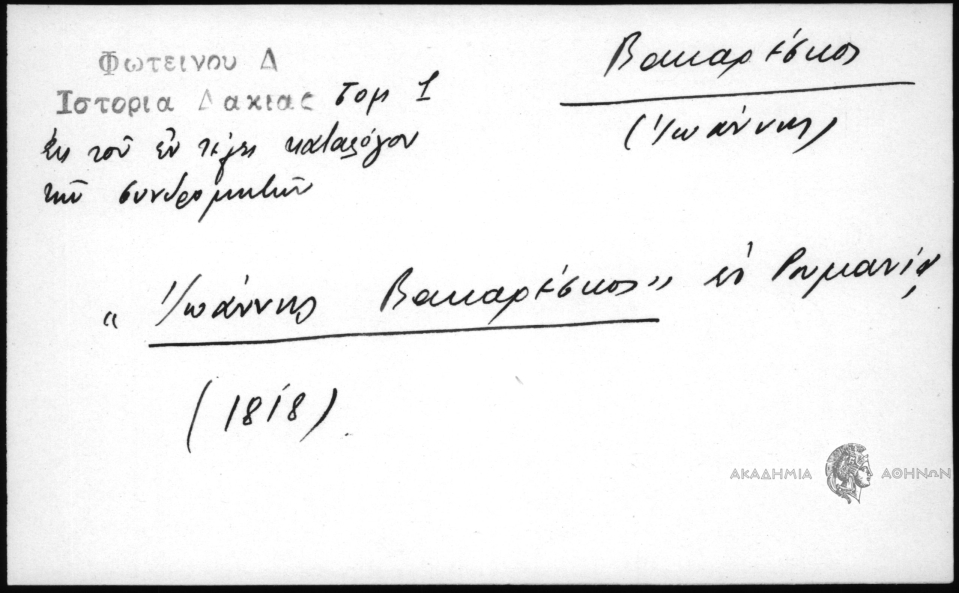 Φωτεινου Δ
Ιστορια Δακιας τομ 1
ἐκ τοῦ ἐν τέλει καταλόγου
τῶν συνδρομητῶν
Βακαρέσκος
(Ἰωάννης)
"Ἰωάννης Βακαρέσκος" ἐν Ρουμανίᾳ
(1818)
ΑΚΑΔΗΜΙΑ ΑΘΗΝΩΝ